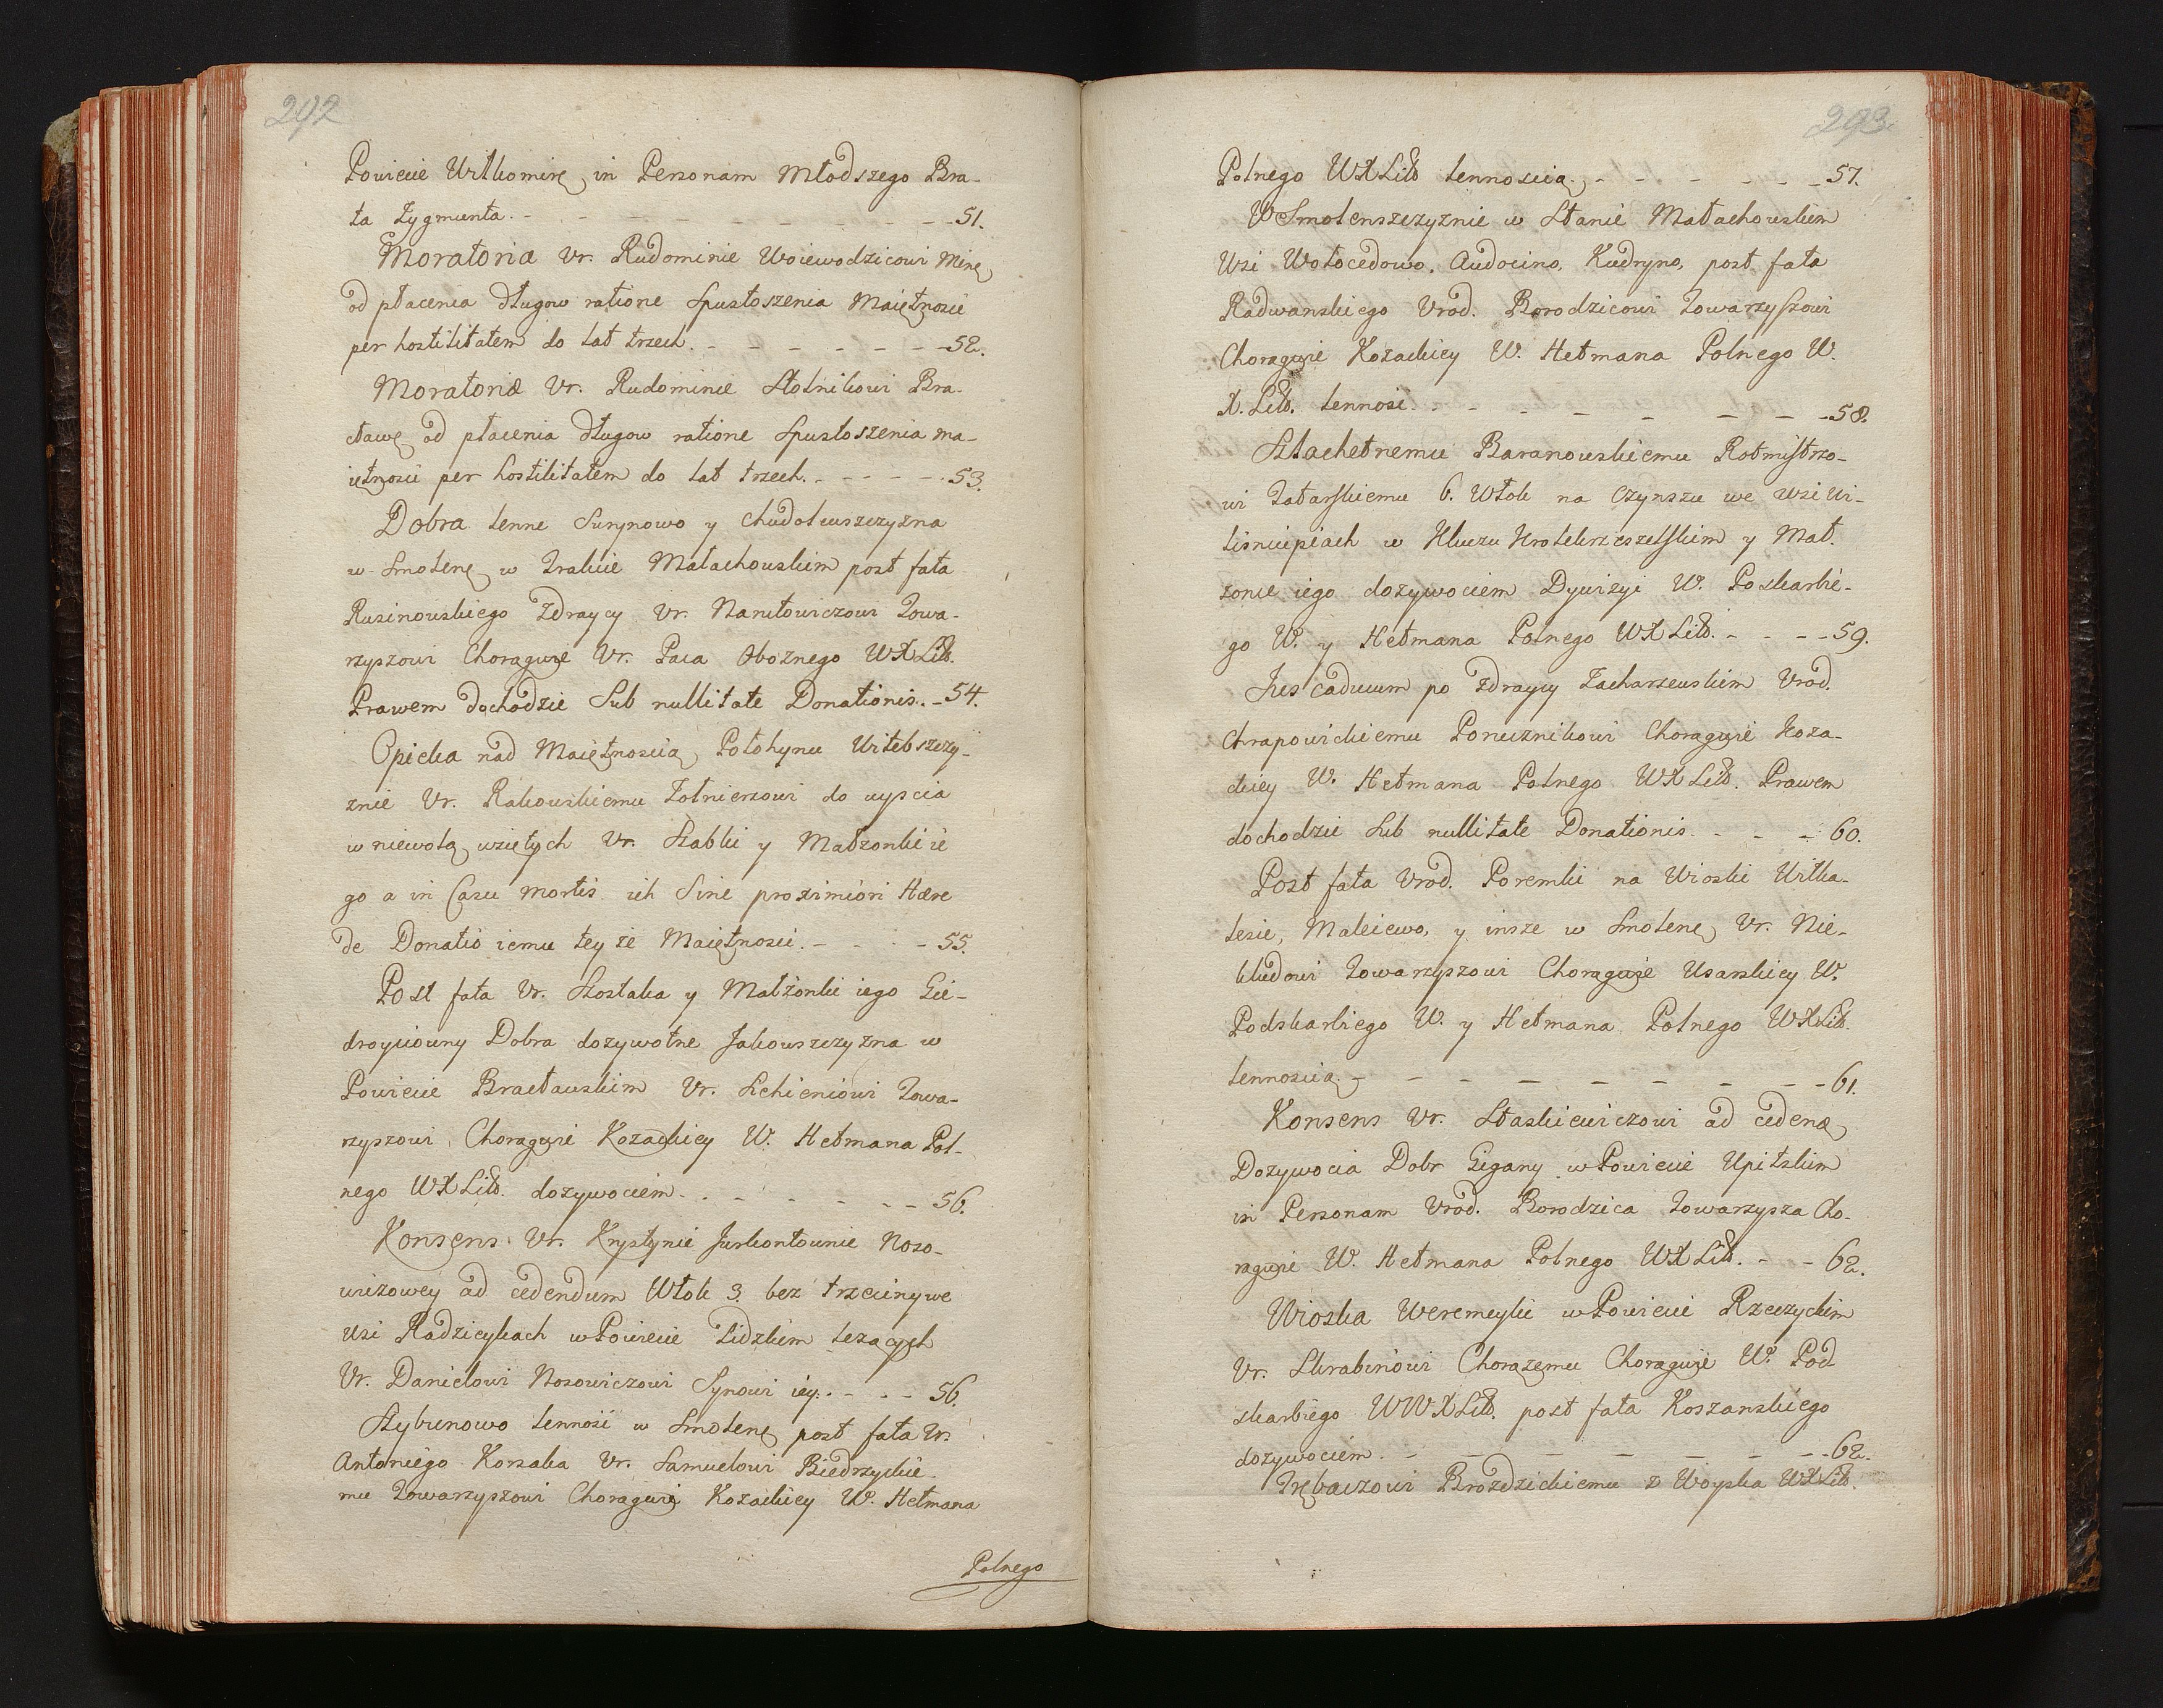 292
Powiecie Wiłkomirę in Personam Młodszego Bra-
ta Zygmunta. - - - - - - - - 51.
Moratoria Ur. Rudominie Woiewodzicowi Minę
od płacenia długow ratione Spustoszenia Maiętnosci
per hostilitatem do lat trzech. - - - - - - 52.
Moratoriæ Ur. Rudominie Stolnikowi Bra-
cławę od płacenia długow ratione Spustoszenia ma-
iętnosci per hostilitatem do lat trzech. - - - - 53.
Dobra lenne Surynowo y Chudolewszczyzna
w Smolenę w Trakcie Małachowskim post fata
Rusinowskiego Zdraycy Ur. Narutowiczowi Towa-
rzyszowi Choragwie Ur. Paca Oboznego WXLitt.
Prawem dochodzic Sub nullitate Donationis. - 54.
Opieka nad Maiętnoscią Połohynu Witebszczy-
znie Ur. Rakowskiemu Zołnierzowi do wyscia
w niewolą wziętych Ur. Szabli y Małzonki ie
go a in Casu mortis ich Sine proximiori Hære
de Donatio iemu tey ze Maiętnosci. - - - 55.
Post fata Ur. Szostaka y Małżonki iego Gie-
droyciowny Dobra dozywotne Jakowszczyzna w
Powiecie Bracławskim Ur. Sehieniowi Towa-
rzyszowi Choragwie Kozackiey W. Hetmana Pol-
nego WXLitt. dozywociem. - - - - - - 56.
Konsens Ur. Krystynie Jurkontownie Noso-
wiczowey ad cedendum Włok 3. bez trzeciny we
wsi Radzieykach w Powiecie Lidzkim lezących
Ur. Danielowi Nosowiczowi Synowi iey. - - - 56.
Szybunowo lennosć w Smolenę post fata Ur.
Antoniego Korsaka Ur. Samuelowi Biedrzyckie-
mu Towarzyszowi Choragwie Kozackiey W. Hetmana
Polnego
293
Polnego WXLitt lennoscią. - - - - - - 57.
W Smolenszczyznie w Stanie Małachowskim
Wsi Wołocedowo, Audocino, Kudryno, post fata
Radwanskiego Urod. Borodzicowi Towarzyszowi
Choragwie Kozackiey W. Hetmana Polnego W.
X. Litt. lennosć. - - - - - - - 58.
Szlachetnemu Baranowskiemu Rotmistrzo-
wi Tatarskiemu 6. Włok na czynszu we wsi Wi-
lisniupiach w Kluczu Krolekrzeszelskim y Mał.
zonce iego dozywociem Dywizyi W. Poskarbie-
go W. y Hetmana Polnego WXLitt. - - - 59.
Jus caducum po Zdraycy Zacharzewskim Urod.
Chrapowickiemu Porucznikowi Choragwie Koza-
ckiey W. Hetmana Polnego WXLitt. Prawem
dochodzic Sub nullitate Donationis. - - - 60.
Post fata Urod. Poremki na Wioski Wilka-
lesie, Maleiewo, y insze w Smolenę Ur. Nie-
kludowi Towarzyszowi Choragwie Usarskiey W.
Podskarbiego W. y Hetmana Polnego WXLitt.
lennoscią. - - - - - - - - 61.
Konsens Ur. Staskiewiczowi ad cedenę
Dozywocia Dobr Gigany w Powiecie Upitskim
in Personam Urod. Borodzica Towarzysza Cho-
ragwie W. Hetmana Polnego WXLitt. - - 62.
Wioska Weremeyki w Powiecie Rzeczyckim
Ur. Skrabinowi Chorązemu Choragwie W. Pod-
skarbiego WWXLitt. post fata Koszanskiego
dozywociem. - - - - - - - 62.
Trębaczowi Brozdzickiemu z Woyska WXLitt.